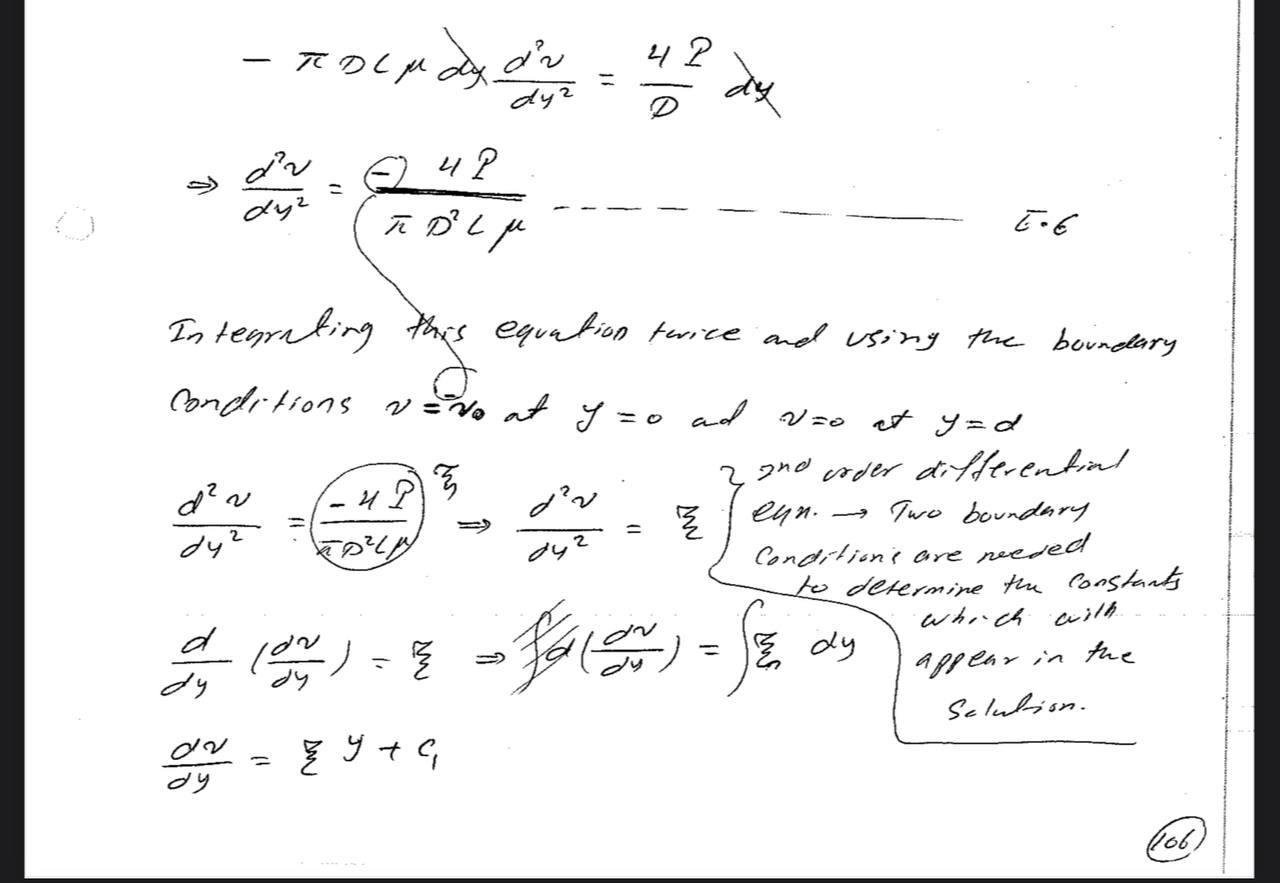 - π D L μ dy d²v/dy² = 4P/D dy
⇒ d²v/dy² = - 4P/π D² L μ ---------- E.6
Integrating this equation twice and using the boundary
Conditions v = -v₀ at y = 0 ad v=0 at y = d
d²v/dy² = -4P/πD²Lμ ξ ⇒ d²v/dy² = ξ
2nd order differential
eqn. → Two boundary
Conditions are needed
to determine the Constants
which with
appear in the
Solution.
d/dy (dv/dy) = ξ ⇒ ∫d(dv/dy) = ∫ξ dy
dv/dy = ξ y + C₁
106